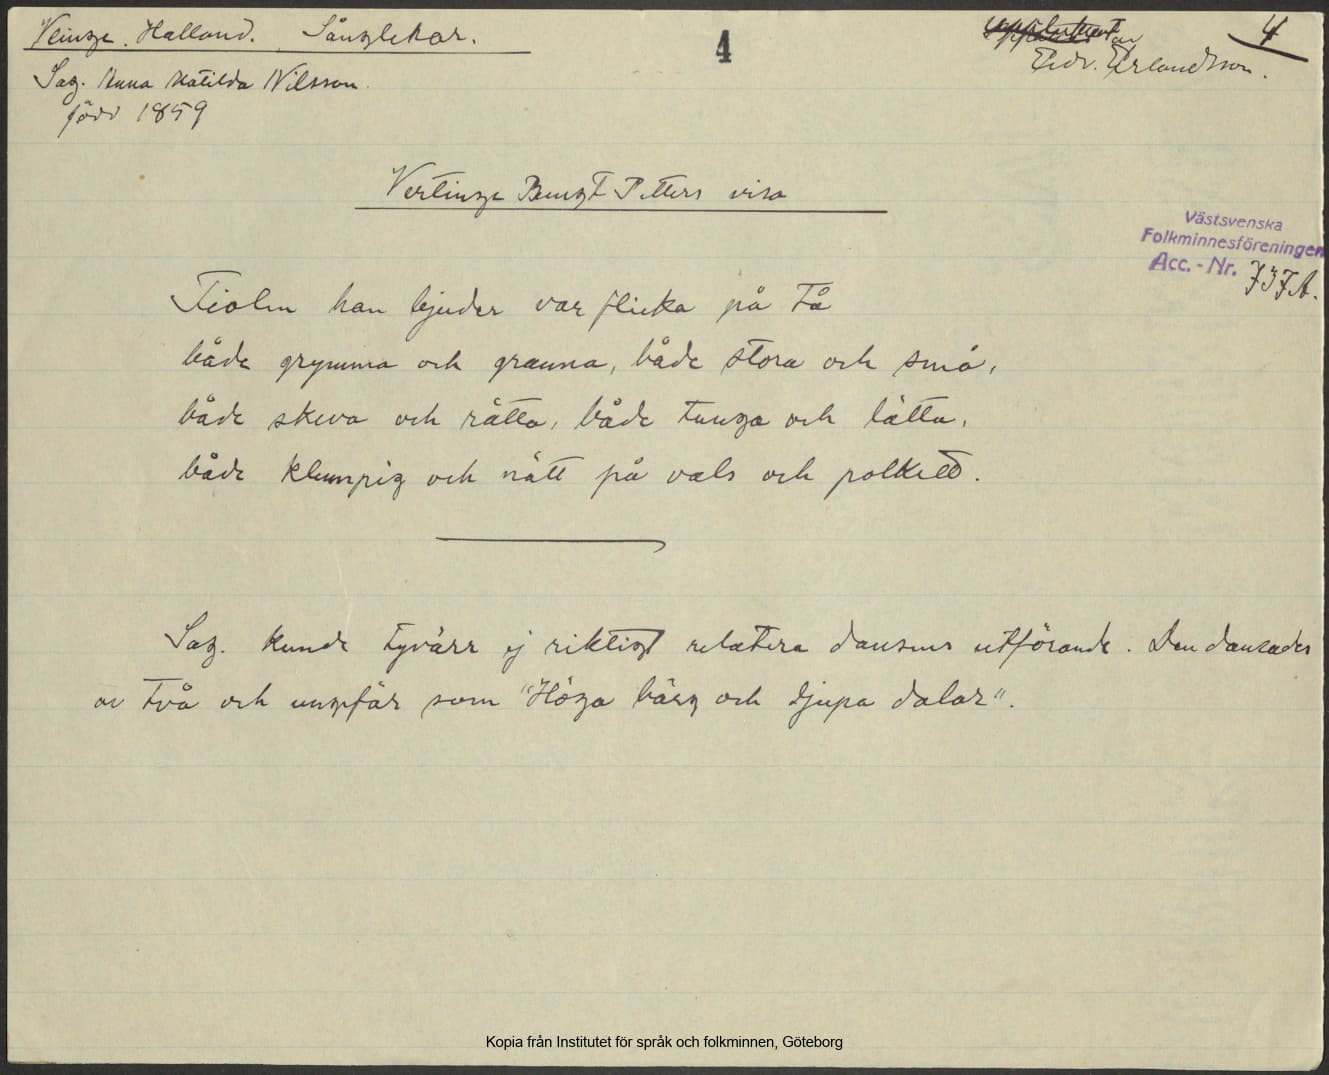 Veinge. Halland. Sånglekar.
4
av
4
Edv. Erlandsson.
Sag. Anna Matilda Nilsson.
född 1859
Vertinge Bengt Petters visa
Västsvenska
Folkminnesföreningen
Acc.-Nr.
Fiolen han bjuder var flicka på tå
både grymma och granna, både stora och små,
både skeva och rätta, både tunga och lätta,
både klumpig och nätt på vals och polkett.
Sag. kunde tyvärr ej riktigt relatera dansens utförande. Den dansades
av två och ungefär som "Höga bärg och djupa dalar".
Kopia från Institutet för språk och folkminnen, Göteborg